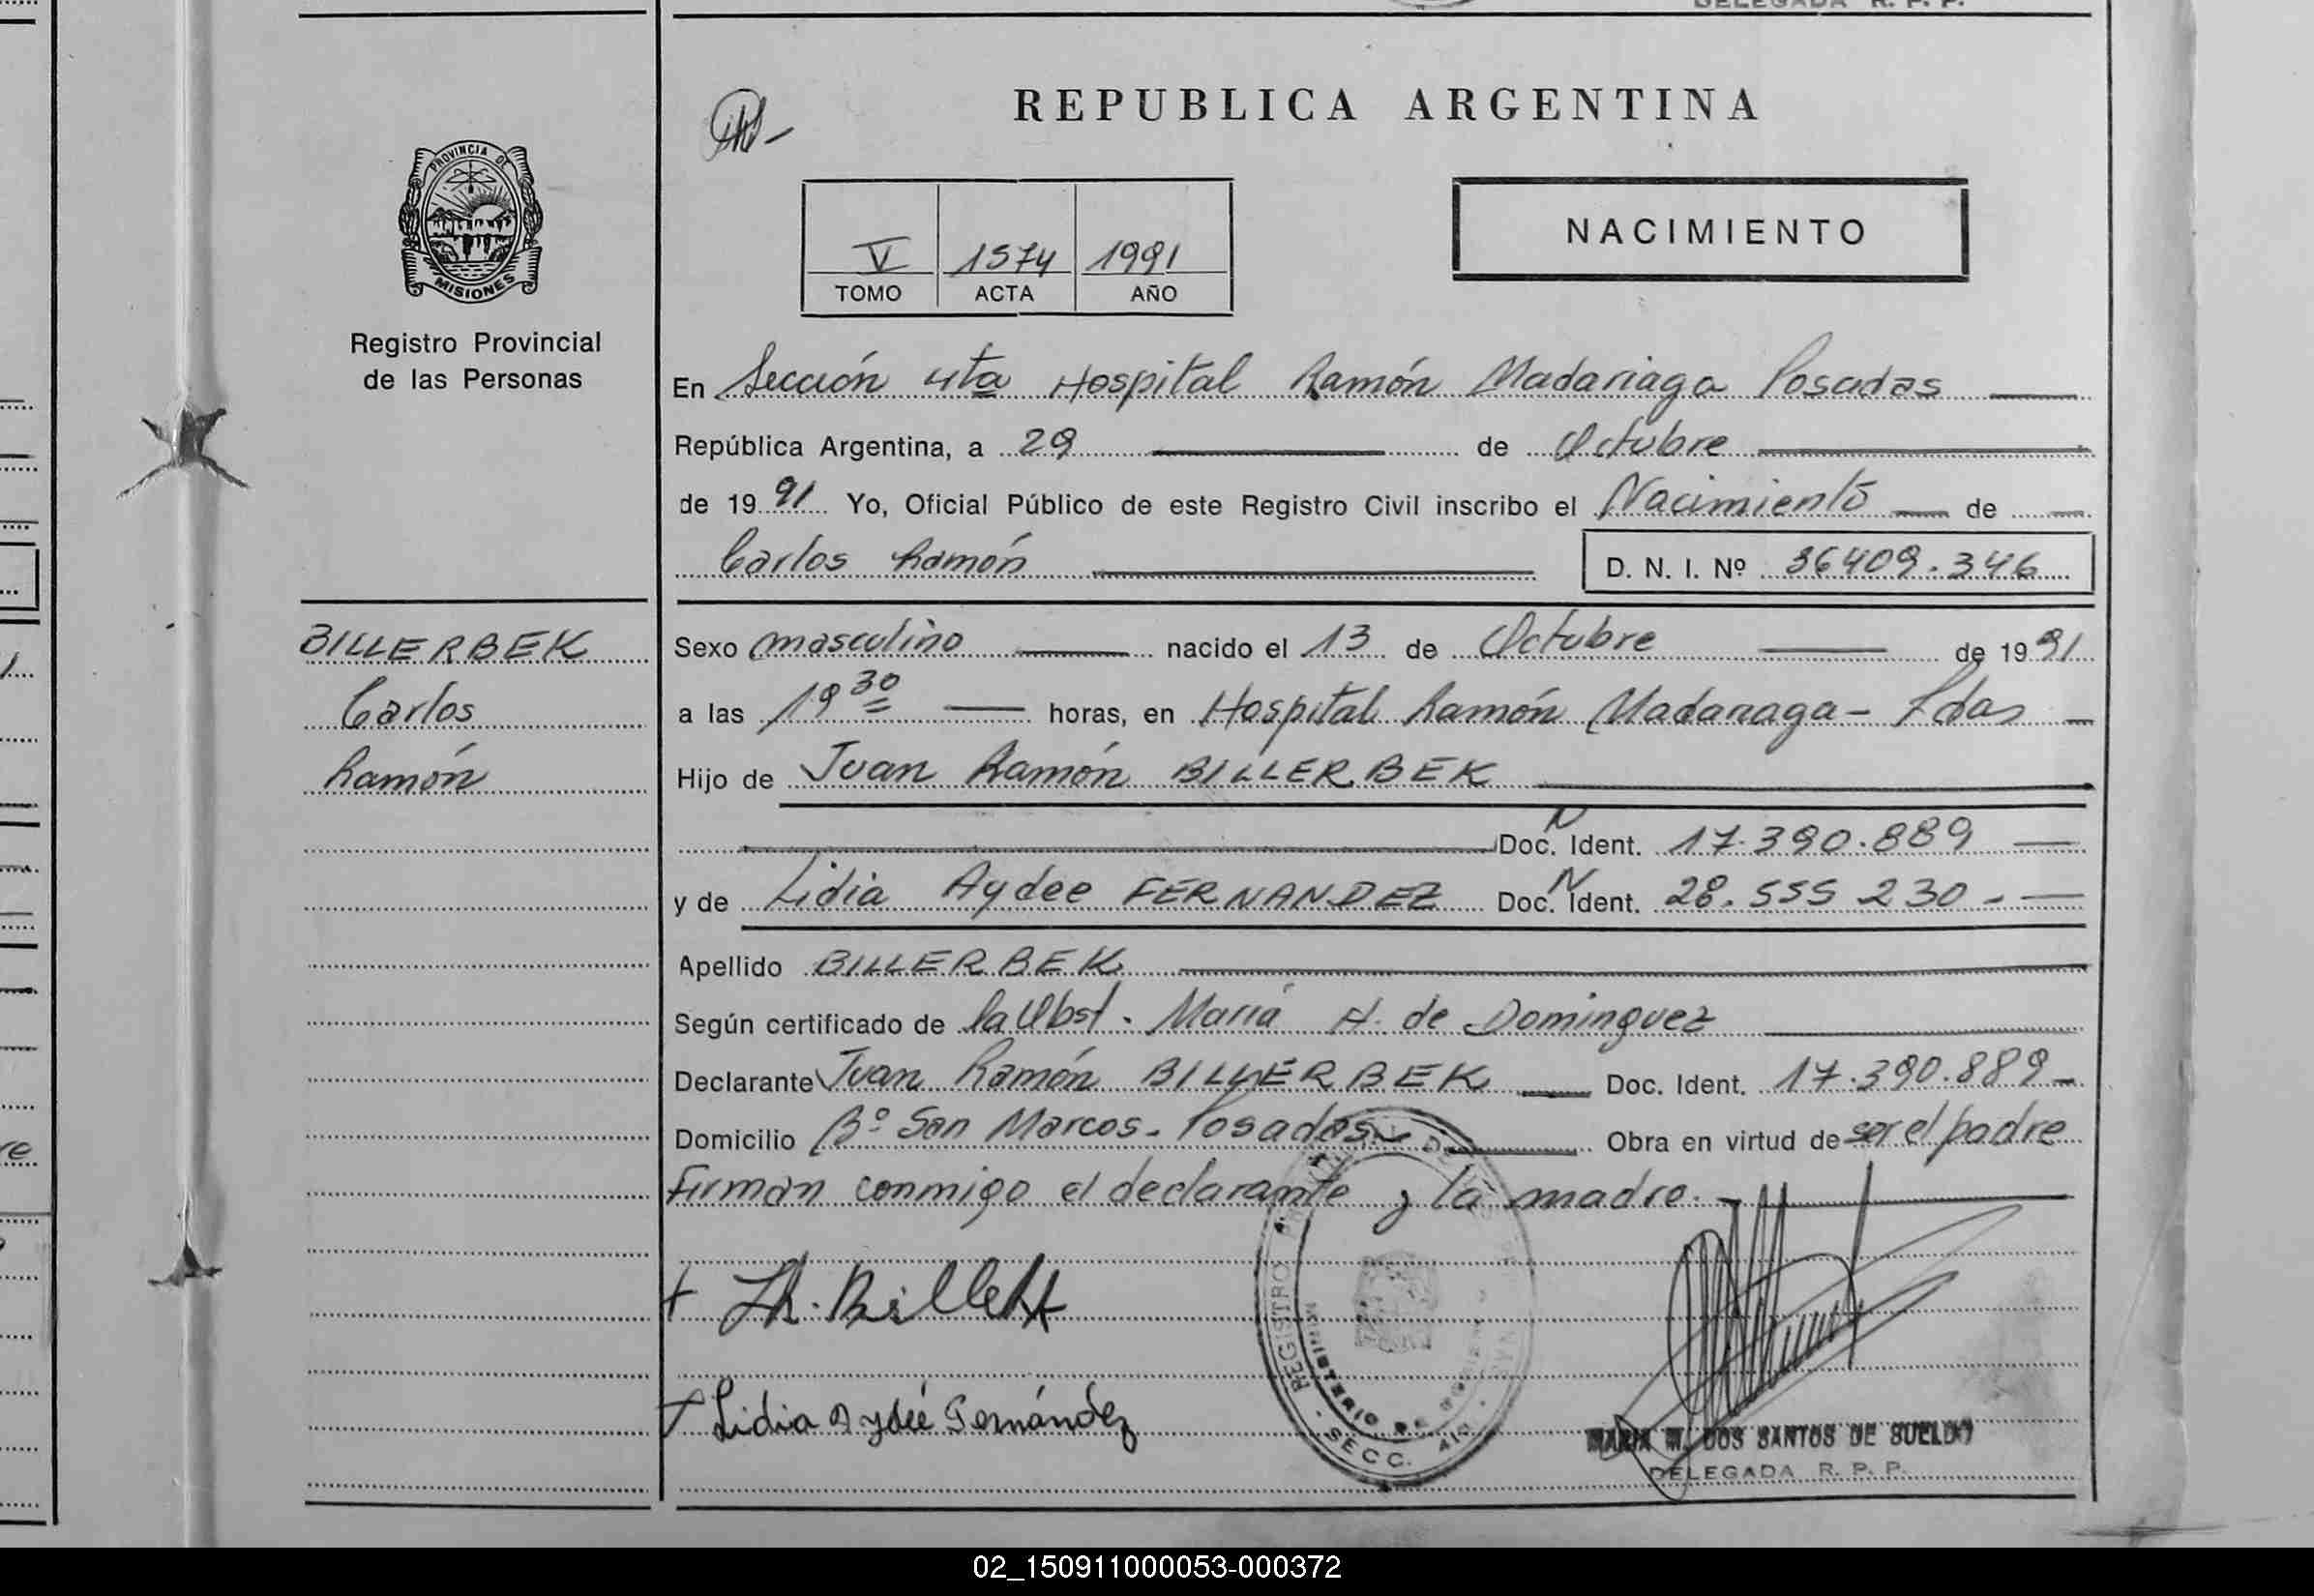 DELEGADA R. P. P.
REPUBLICA ARGENTINA
PROVINCIA DE
MISIONES
Registro Provincial
de las Personas
V 1574 1991
TOMO ACTA AÑO
NACIMIENTO
En Sección 4ta Hospital Ramón Madariaga Posadas
República Argentina, a 29 de Octubre
de 1991 Yo, Oficial Público de este Registro Civil inscribo el Nacimiento de
Carlos Ramón D. N. I. Nº 36409.346
BILLERBEK
Carlos
Ramón
Sexo masculino nacido el 13 de Octubre de 1991
a las 19 30 horas, en Hospital Ramón Madariaga - Pdas
Hijo de Juan Ramón BILLERBEK
Doc. N Ident. 17.390.889
y de Lidia Aydee FERNANDEZ Doc. N Ident. 28.555 230.-
Apellido BILLERBEK
Según certificado de la Obst. María H. de Dominguez
Declarante Juan Ramón BILLERBEK Doc. Ident. 17.390.889-
Domicilio Bº San Marcos - Posadas Obra en virtud de ser el padre
Firman conmigo el declarante y la madre.-
Lidia Aydeé Fernández
REGISTRO
MINISTERIO DE
SECC.
MARIA M. DOS SANTOS DE SUELDO
DELEGADA R. P. P.
02_150911000053-000372